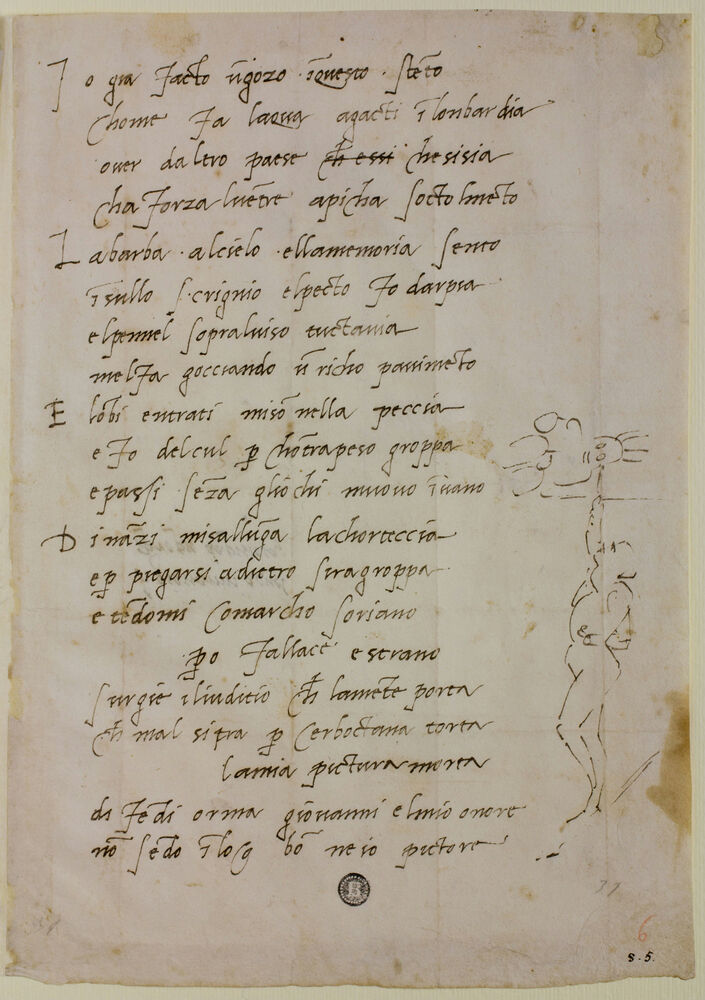 I o gia facto ūgozo ī questo stēto
chome fa laqua agacti ī lombardia
over daltro paese ch essi chesisia
cha forza lvētre apicha socto lmēto
L abarba alcielo ellamemoria sento
ī sullo scrignio elpecto fo darpia
elpennel sopralviso tuctavia
melfa gocciando ū richo pavimēto
E lōbi entrati misō nella peccia
e fo delcul p chōtrapeso groppa
e passi sēza gliochi muovo ī vano
D ināzi misallūga lachorteccia
e p piegarsi adietro siragroppa
e tēdomi comarcho soriano
po fallace e strano
surgie il iuditio ch lamēte porta
ch mal si tra p cerboctana torta
lamia pictura morta
di fēdi orma giovanni elmio onore
nō sēdo ī log bō ne io pictore
6
8.5.